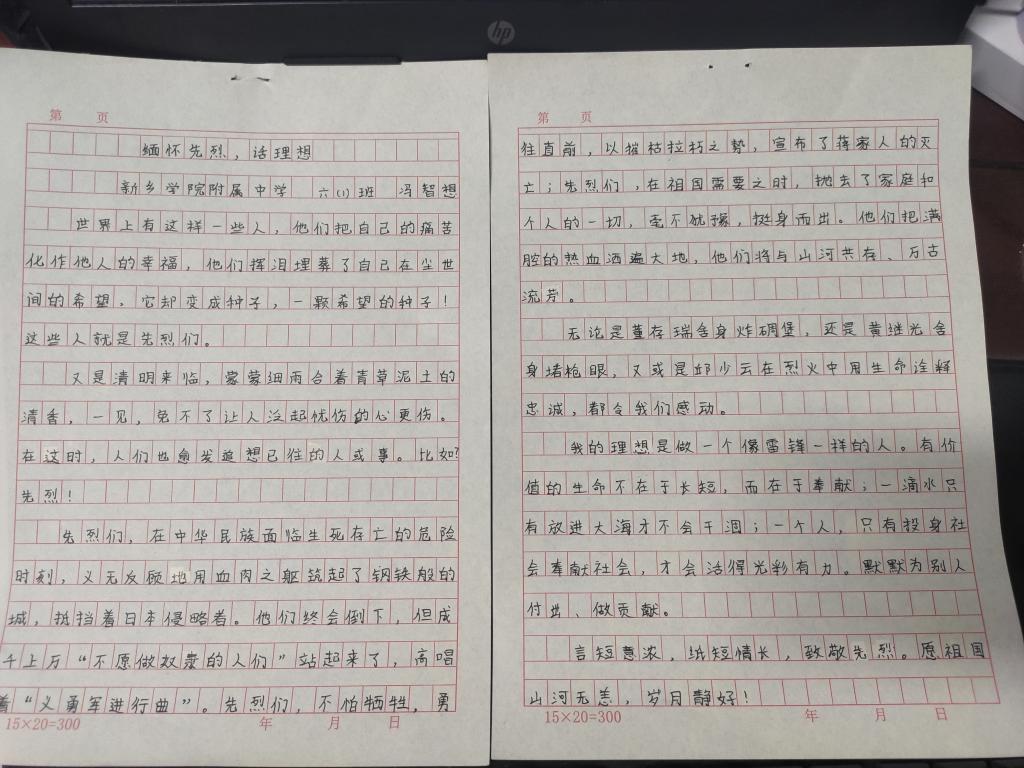 hp
第 页
缅怀先烈，话理想
新乡学院附属中学 六(1)班 冯智想
世界上有这样一些人，他们把自己的痛苦
化作他人的幸福，他们挥泪埋葬了自己在尘世
间的希望，它却变成种子，一颗希望的种子！
这些人就是先烈们。
又是清明来临，蒙蒙细雨合着青草泥土的
清香，一见，免不了让人泛起忧伤的心更伤。
在这时，人们也愈发追想已往的人或事。比如？
先烈！
先烈们，在中华民族面临生死存亡的危险
时刻，义无反顾地用血肉之躯筑起了钢铁般的
城，抵挡着日本侵略者。他们终会倒下，但成
千上万“不愿做奴隶的人们”站起来了，高唱
着“义勇军进行曲”。先烈们，不怕牺牲，勇
15×20=300 年 月 日
第 页
往直前，以摧枯拉朽之势，宣布了蒋家人的灭
亡；先烈们，在祖国需要之时，抛去了家庭和
个人的一切，毫不犹豫，挺身而出。他们把满
腔的热血洒遍大地，他们将与山河共存、万古
流芳。
无论是董存瑞舍身炸碉堡，还是黄继光舍
身堵枪眼，又或是邱少云在烈火中用生命诠释
忠诚，都令我们感动。
我的理想是做一个像雷锋一样的人。有价
值的生命不在于长短，而在于奉献；一滴水只
有放进大海才不会干涸；一个人，只有投身社
会奉献社会，才会活得光彩有力。默默为别人
付出、做贡献。
言短意浓，纸短情长，致敬先烈。愿祖国
山河无恙，岁月静好！
15×20=300 年 月 日